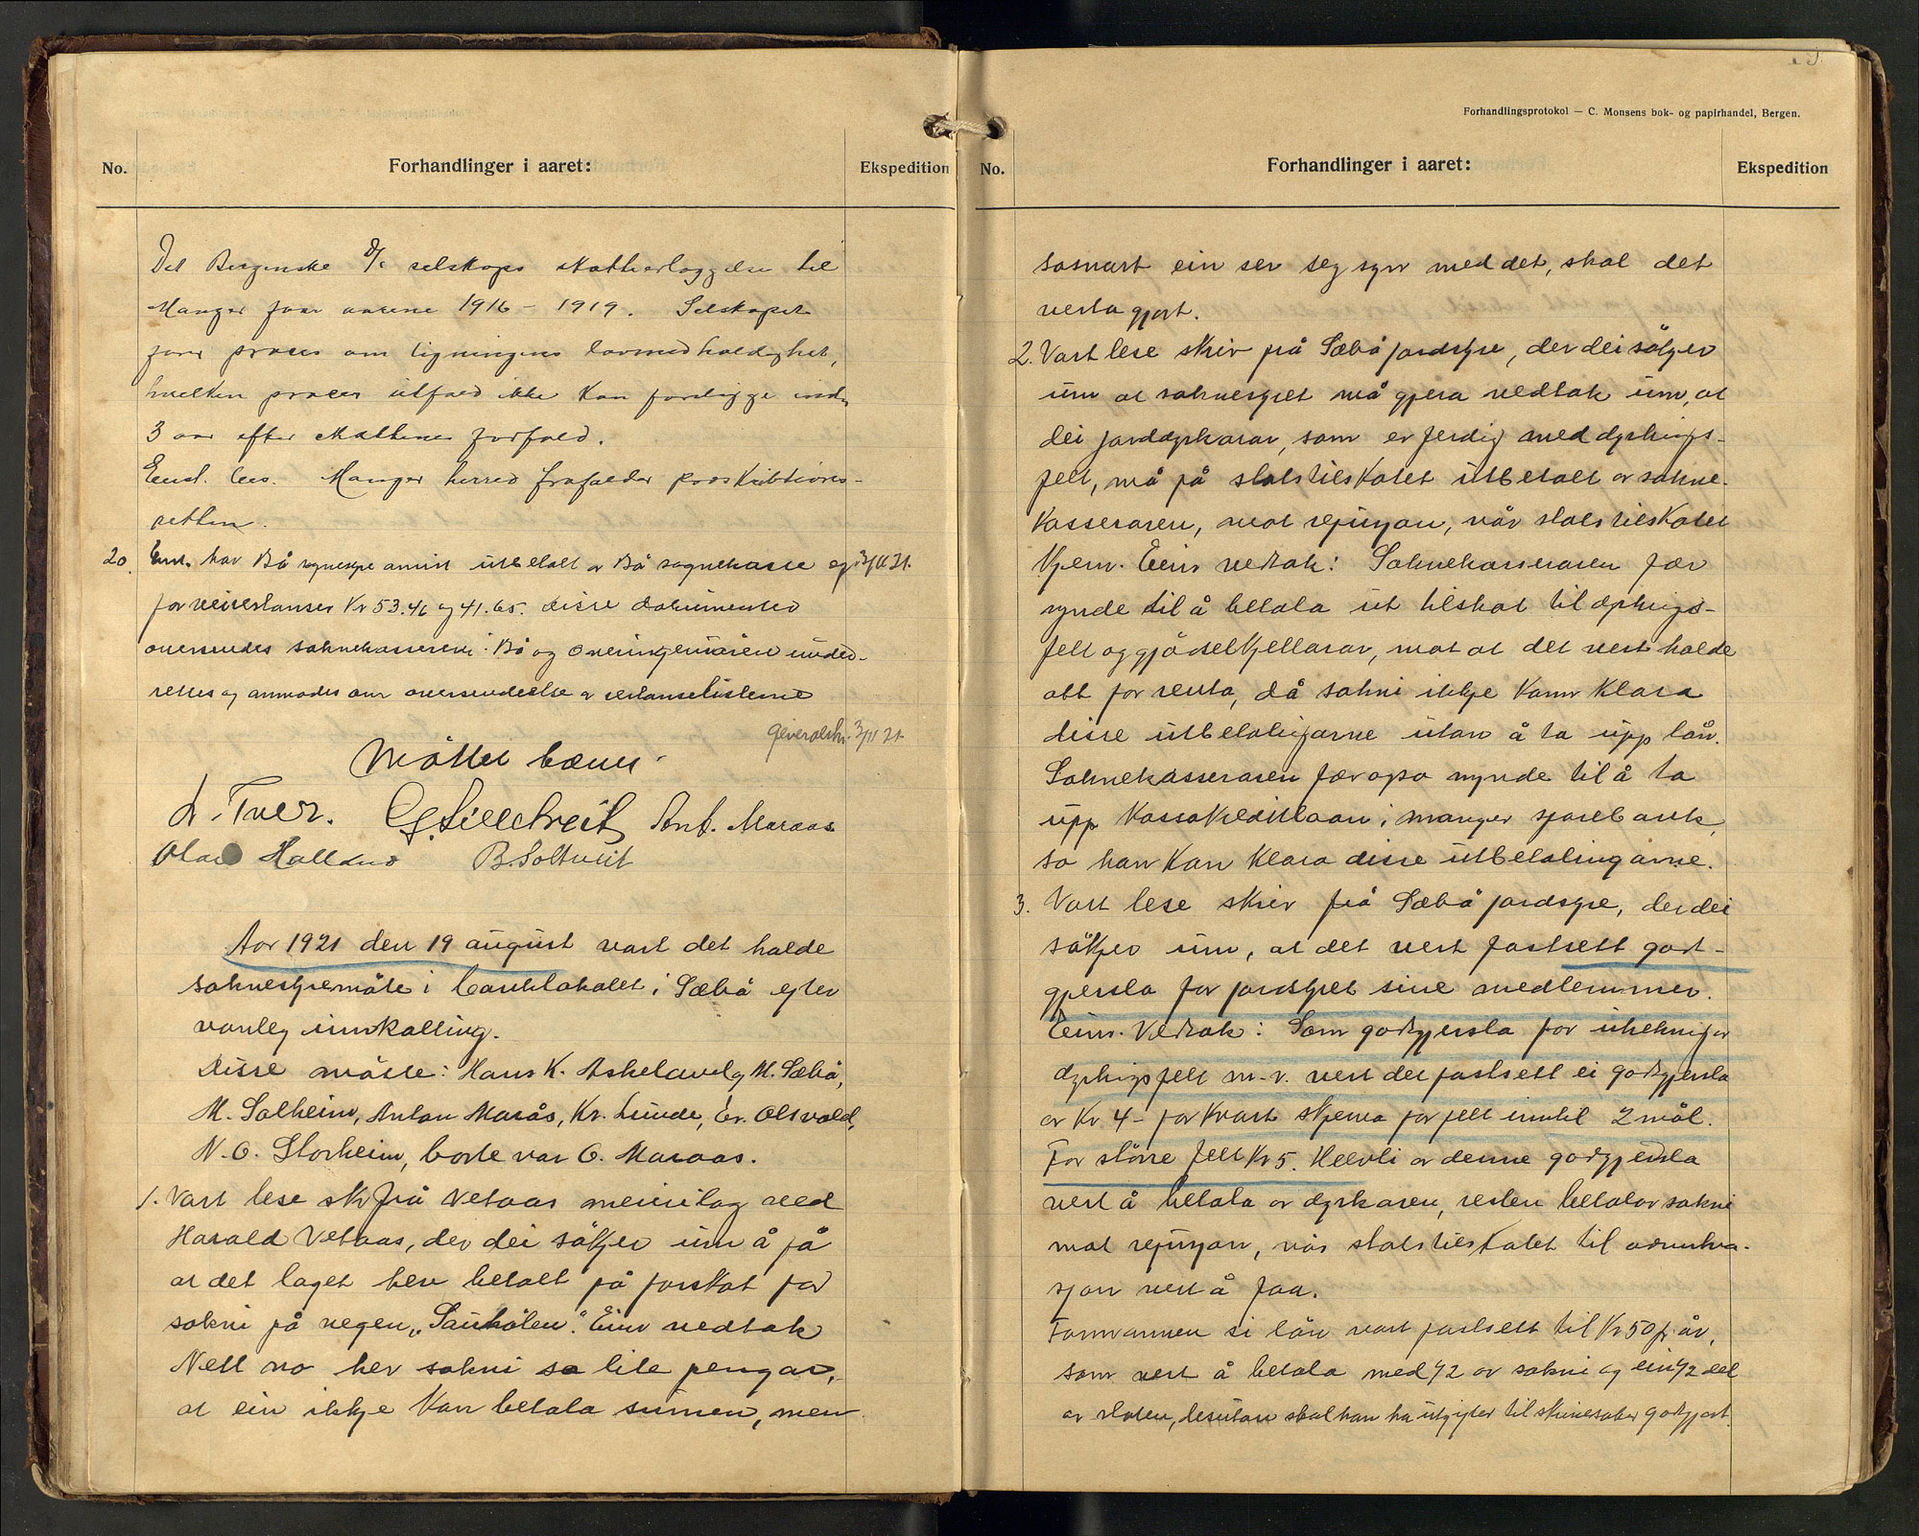 No.
Forhandlinger i aaret:
Ekspedition
Det Bergenske D/s selskaps skatterlæggelse til
Manger for aarene 1916 - 1919. Selskapet
fører proces om ligningens lovmedholdighet,
hvilken proces utfald ikke kan foreligge inden
3 aar efter skattenes forfald.
Enst. bes. Manger herred frafalder preskriptions-
retten.
20. Enst. har Bø sognestyre anvist utbetalt av Bø sognekasse og 3/11 21.
for veirestanser Kr 53.46 og 41.65. Disse dokumenter
oversendes soknekassereren i Bø og overingeniøren under-
rettes og anmodes om oversendelse av restanselisterne
3/11 21.
Møttet hævet.
A. Tveit. Ant. Maraas
Olai Halland B. Soltveit
Aar 1921 den 19 august vart det halde
soknestyremøte i banklokalet i Sæbø etter
vanleg innkalling.
Disse møtte: Hans K. Askeland, M. Sæbø,
M. Solheim, Anton Marås, Kr. Lunde, Er. Olsvold,
N. O. Storheim, borte var O. Maraas.
1. Vart lese skr. frå Vetaas meierilag ved
Harald Vetaas, der dei søkjer um å få
at det laget hev betalt på forskot for
sokni på vegen „Sauhølen". Einr vedtak
Nett no hev sokni so lite pengar,
at ein ikkje kan betala sumen, men
Forhandlingsprotokol — C. Monsens bok- og papirhandel, Bergen.
No.
Forhandlinger i aaret:
Ekspedition
sosnart ein ser seg syn med det, skal det
verta gjort.
2. Vart lese skriv frå Sæbø jordstyre, der dei søkjer
um at soknestyret må gjera vedtak um, at
dei jorddyrkarar, som er ferdig med dyrkings-
felt, må få statstilskotet utbetalt av sokne-
kasseraren, mot refusjon, når statstilskotet
kjem. Einr vedtak: Soknekasseraren fær
mynde til å betala ut tilskot til dyrkings-
felt og gjødselkjellarar, mot at det vert halde
att for renta, då sokni ikkje kann klara
disse utbetalingarne utan å ta upp lån.
Soknekasseraren fær ogso mynde til å ta
upp kassakreditlaan i Manger sparebank,
so han kan klara disse utbetalingarne.
3. Vart lese skriv frå Sæbø jordstyre, der dei
søkjer um, at det vert fastsett godt-
gjersla for jordstyret sine medlemmer.
Einr. Vedtak: Som godtgjersla for utrekning av
dyrkingsfelt m.v. vert det fastsett ei godtgjersla
av Kr 4- for kvart skjema for felt inntil 2 mål.
For større felt Kr 5. Helvti av denne godtgjersla
vert å betala av dyrkaren, resten betalar sokni
mot refusjon, når statstilskotet til administra-
sjon vert å faa.
Formannen si løn vart fastsett til Kr 50 pr år,
som vert å betala med 1/2 av sokni og ein 1/2 del
av staten, desutan skal han ha utgifter til skrivesaker godtgjort.